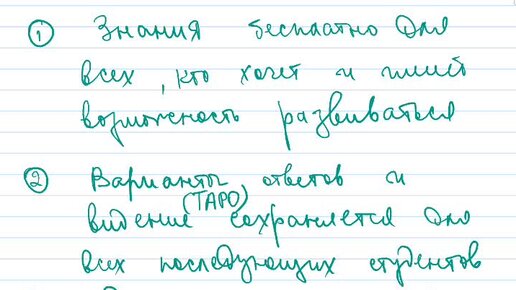 ① Знания бесплатно для
всех, кто хочет и имеет
возможность развиваться
② Варианты ответов и
(ТАРО)
видение сохраняется для
всех последующих студентов